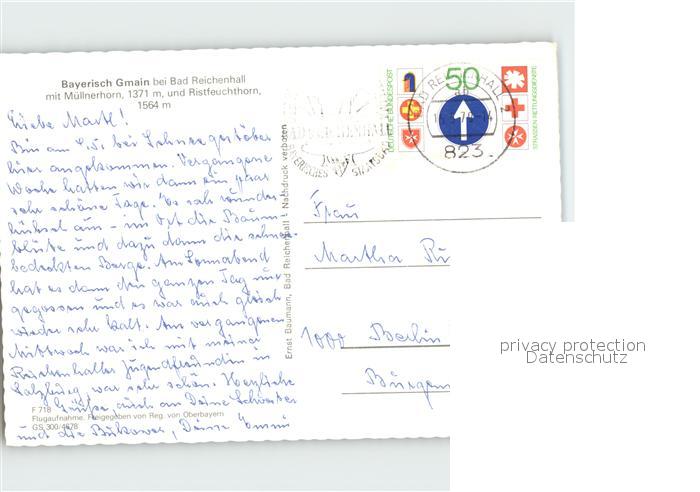 Bayerisch Gmain bei Bad Reichenhall
mit Müllnerhorn, 1371 m, und Ristfeuchthorn,
1564 m
Liebe Martl!
Bin am bei Schneegestöber
hier angekommen. Vergangene
Woche hatten wir dann ein paar
sehr schöne Tage. Es sah wunder-
hübsch aus - im Ort die Baum-
blüte und dazu dann die schnee-
bedeckten Berge. Am Sonnabend
hat es dann den ganzen Tag nur
gegossen und es war auch gleich
wieder sehr kalt. Am vergangenen
Mittwoch war ich mit meiner
Reichenhaller Jugendfreundin in
Salzburg, war sehr schön. Herzliche
Grüße, auch an Deine Schwester
und die Deine
F 718
Flugaufnahme. Freigegeben von Reg. von Oberbayern
GS 300/4678
Ernst Baumann, Bad Reichenhall - Nachdruck verboten
DEUTSCHE BUNDESPOST
50
STRASSEN RETTUNGSDIENSTE
BAD REICHENHALL 2
823
Frau
Martha
1000 Berlin
privacy protection
Datenschutz